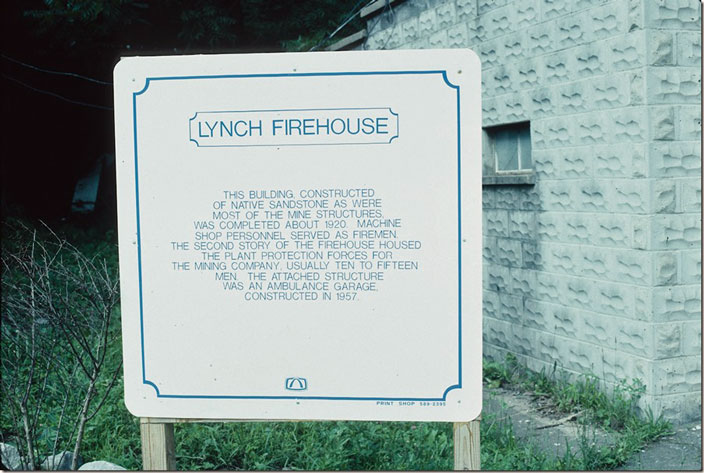 LYNCH FIREHOUSE
THIS BUILDING, CONSTRUCTED
OF NATIVE SANDSTONE AS WERE
MOST OF THE MINE STRUCTURES,
WAS COMPLETED ABOUT 1920. MACHINE
SHOP PERSONNEL SERVED AS FIREMEN.
THE SECOND STORY OF THE FIREHOUSE HOUSED
THE PLANT PROTECTION FORCES FOR
THE MINING COMPANY, USUALLY TEN TO FIFTEEN
MEN. THE ATTACHED STRUCTURE
WAS AN AMBULANCE GARAGE,
CONSTRUCTED IN 1957.
PRINT SHOP